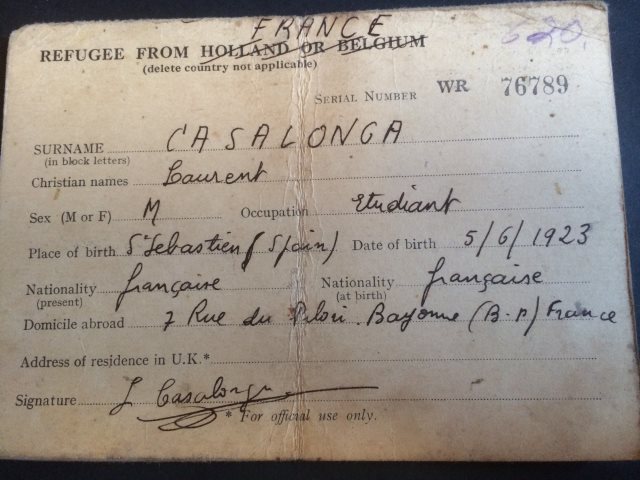 FRANCE
REFUGEE FROM HOLLAND OR BELGIUM
(delete country not applicable)
620
SERIAL NUMBER WR 76789
SURNAME CASALONGA
(in block letters)
Christian names Laurent
Sex (M or F) M Occupation Etudiant
Place of birth St Sebastien (Spain) Date of birth 5/6/1923
Nationality française Nationality française
(present) (at birth)
Domicile abroad 7 Rue du Pilori. Bayonne (B-P) France
Address of residence in U.K.*
Signature L Casalonga
* For official use only.